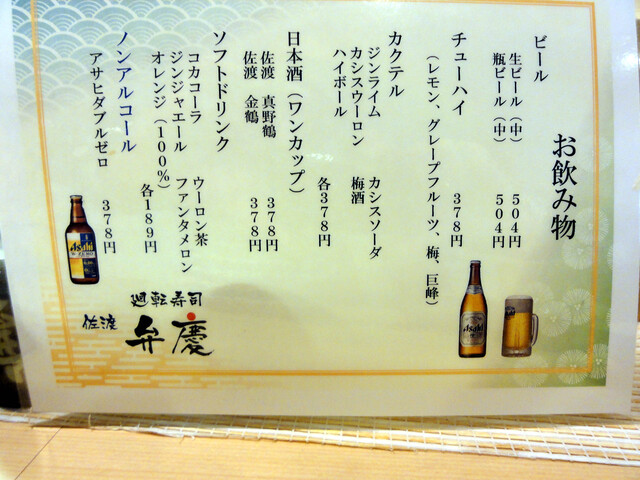 お飲み物
ビール
生ビール（中） ５０４円
瓶ビール（中） ５０４円
チューハイ ３７８円
（レモン、グレープフルーツ、梅、巨峰）
カクテル
ジンライム カシスソーダ
カシスウーロン 梅酒
ハイボール 各３７８円
日本酒（ワンカップ）
佐渡 真野鶴 ３７８円
佐渡 金鶴 ３７８円
ソフトドリンク
コカコーラ ウーロン茶
ジンジャエール ファンタメロン
オレンジ（１００％） 各１８９円
ノンアルコール
アサヒダブルゼロ ３７８円
Asahi
Asahi
廻転寿司
弁慶
佐渡